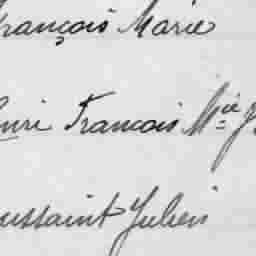 François Marie
Henri Francois Mie J
oussaint Julien